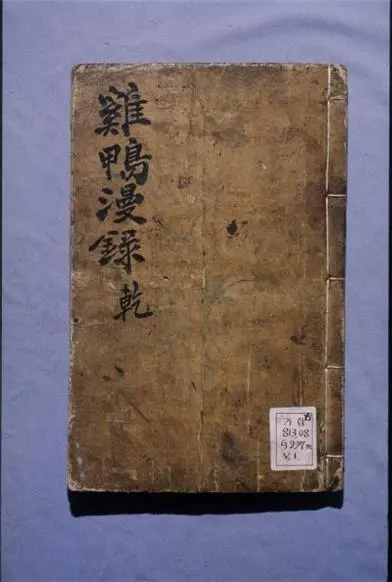 雞鴨漫錄 乾
古
가람
813.08
G997m
V.1